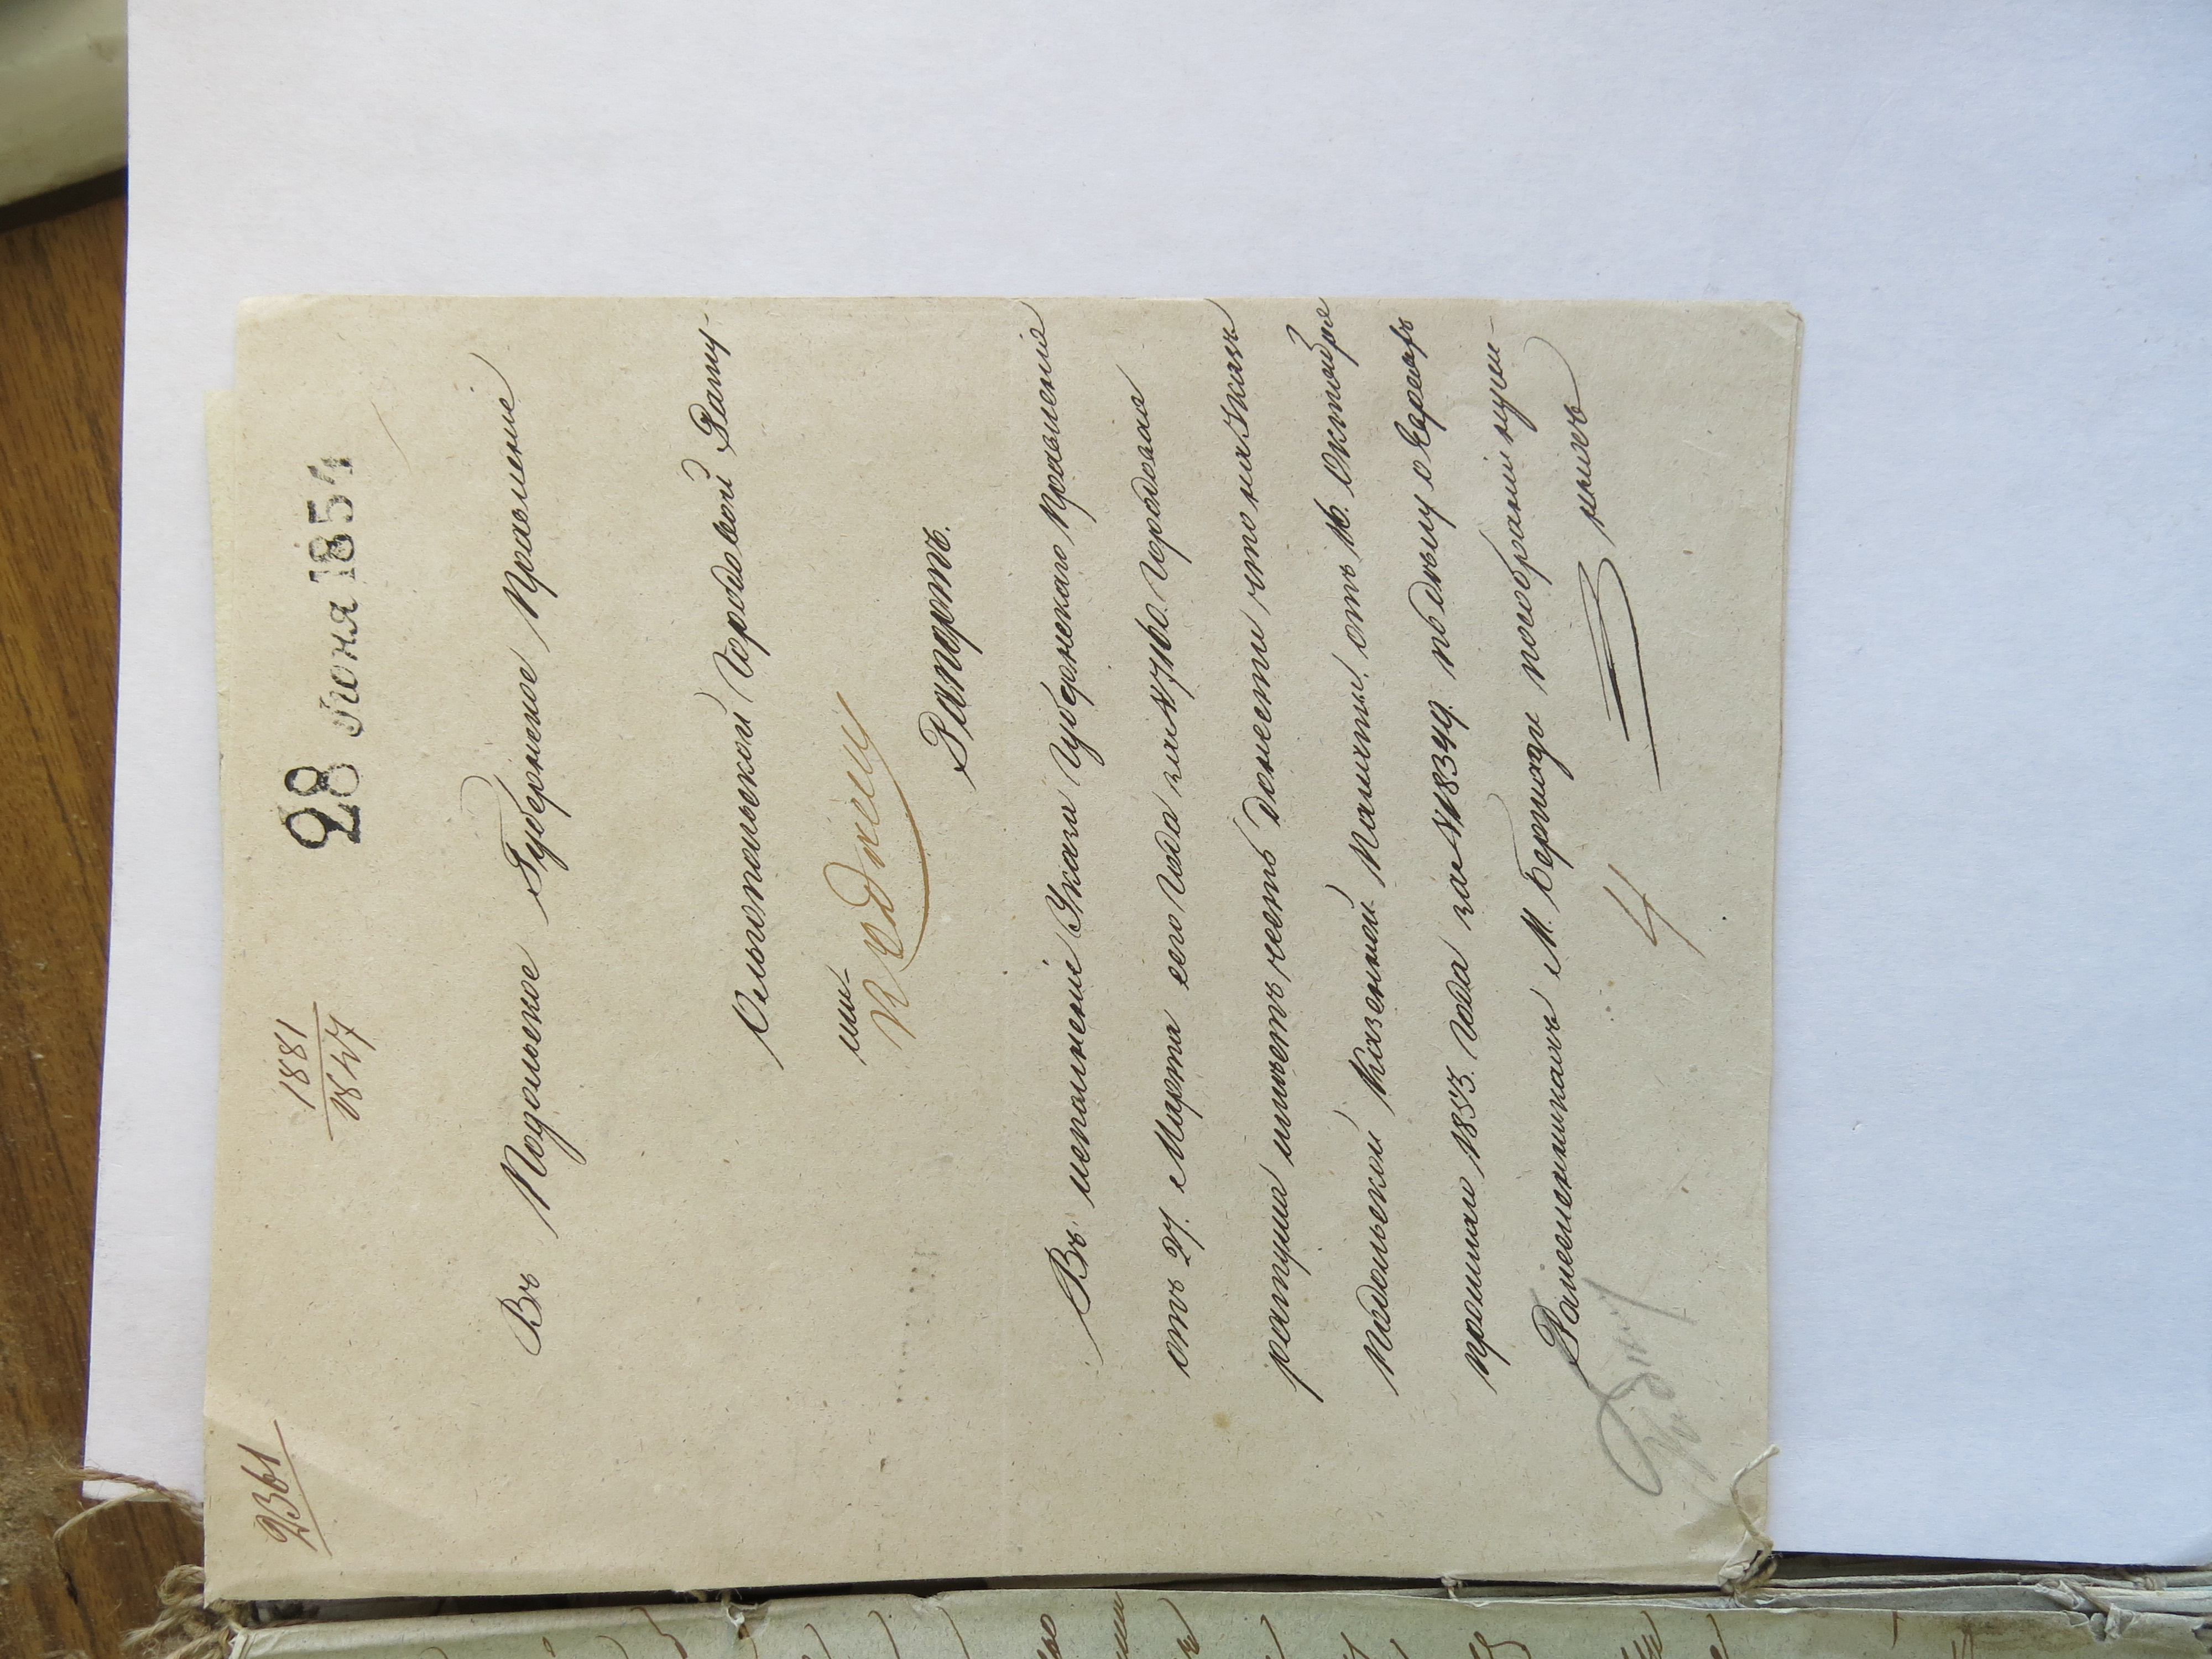 2361
1881
1847
28 Июня 1854
Въ Подольское Губернское Правленіе
Ольгопольской Городовой Рату-
ши-
Рапортъ.
Въ исполненіе Указа Губернскаго Правленія
отъ 27. Марта сего Года за №7160. Городовая
ратуша имѣетъ честь донести что на Указъ
Подольской Казенной Палаты, отъ 16. Октября
прошлаго 1853. Года за №18349. по дѣлу о Евреяхъ
Ремесленникахъ М. Бершади
4